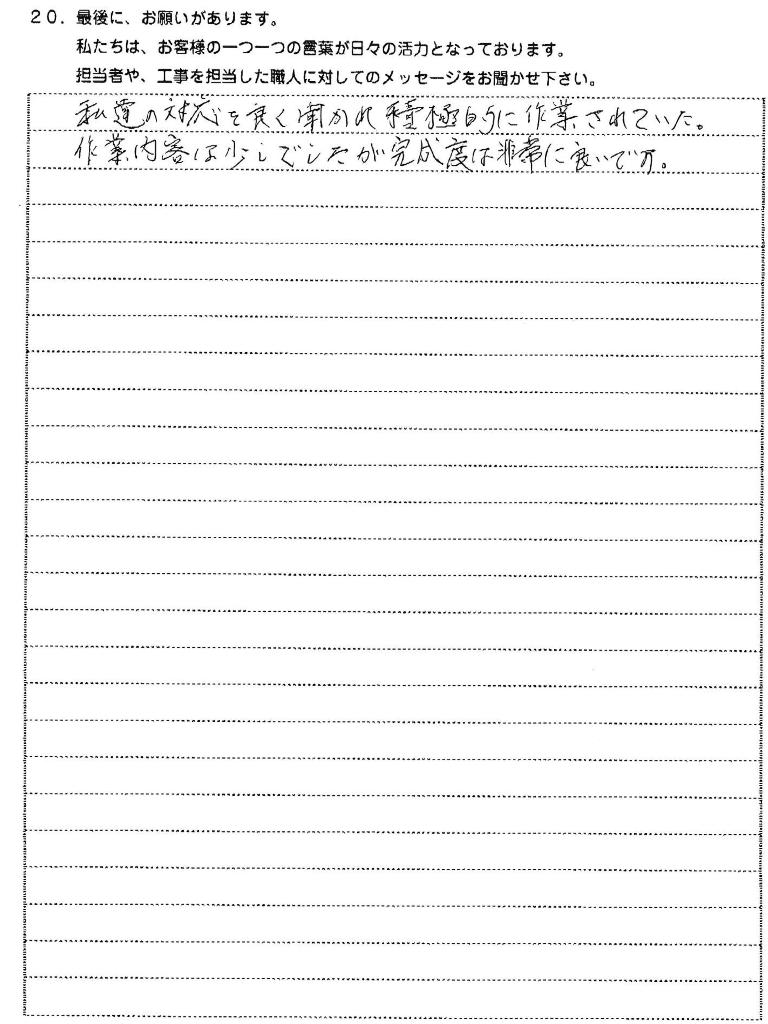 20．最後に、お願いがあります。
私たちは、お客様の一つ一つの言葉が日々の活力となっております。
担当者や、工事を担当した職人に対してのメッセージをお聞かせ下さい。
私達の対応を良く聞かれ積極的に作業されていた。
作業内容は少しでしたが完成度は非常に良いです。